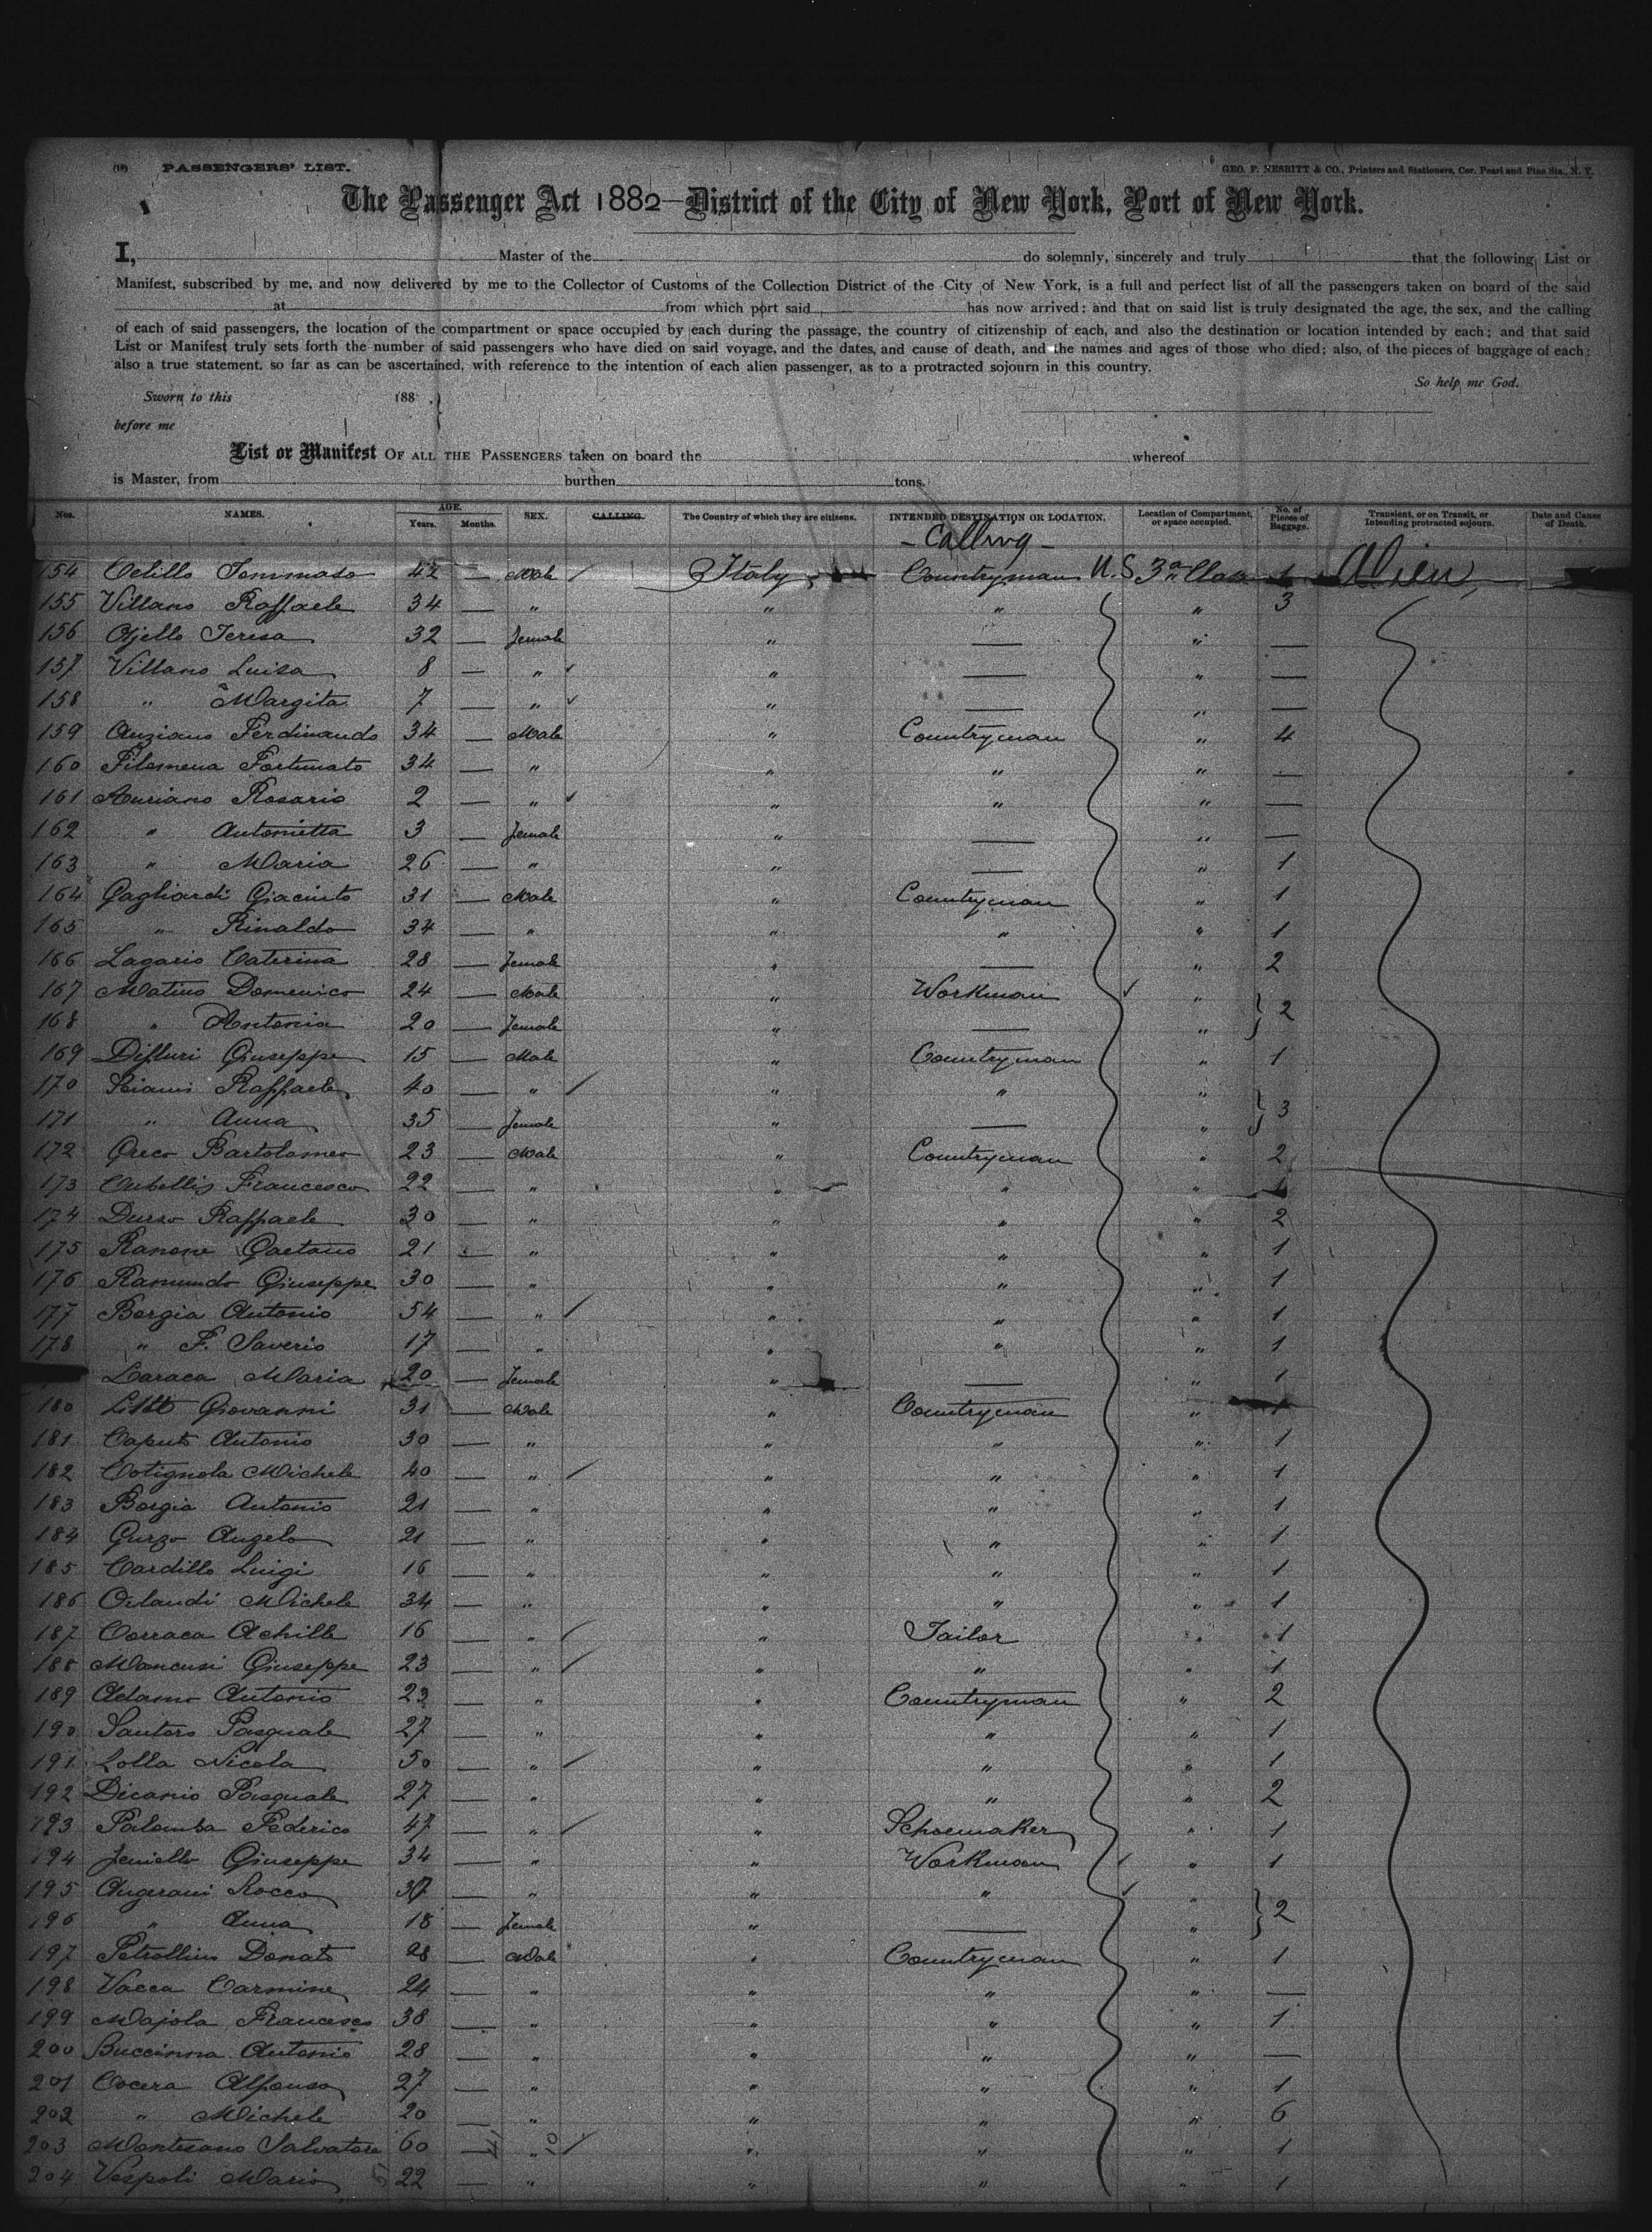 (18) PASSENGERS' LIST. GEO. F. NESBITT & CO., Printers and Stationers, Cor. Pearl and Pine Sts., N. Y.
The Passenger Act 1882—District of the City of New York, Port of New York.
I, Master of the do solemnly, sincerely and truly that the following List or
Manifest, subscribed by me, and now delivered by me to the Collector of Customs of the Collection District of the City of New York, is a full and perfect list of all the passengers taken on board of the said
at from which port said has now arrived; and that on said list is truly designated the age, the sex, and the calling
of each of said passengers, the location of the compartment or space occupied by each during the passage, the country of citizenship of each, and also the destination or location intended by each; and that said
List or Manifest truly sets forth the number of said passengers who have died on said voyage, and the dates, and cause of death, and the names and ages of those who died; also, of the pieces of baggage of each;
also a true statement, so far as can be ascertained, with reference to the intention of each alien passenger, as to a protracted sojourn in this country.
So help me God.
Sworn to this 188 .}
before me
List or Manifest OF ALL THE PASSENGERS taken on board the whereof
is Master, from burthen tons.
Nos. NAMES. AGE. Years. Months. SEX. CALLING. The Country of which they are citizens. INTENDED DESTINATION OR LOCATION. Location of Compartment, or space occupied. No. of Pieces of Baggage. Transient, or on Transit, or Intending protracted sojourn. Date and Cause of Death.
- Calling -
154 Celillo Tommaso 42 — Male / Italy Countryman U.S 3a Class 1 Alien
155 Villano Raffaele 34 — " " " " 3
156 Ajello Teresa 32 — Female " — " —
157 Villano Luisa 8 — " " — " —
158 " Margita 7 — " " — " —
159 Auziano Ferdinando 34 — Male " Countryman " 4
160 Filomena Fortunato 34 — " " " " —
161 Auriano Rosario 2 — " " " " —
162 " Antonietta 3 — Female " — " —
163 " Maria 26 — " " — " 1
164 Gagliardi Giacinto 31 — Male " Countryman " 1
165 " Rinaldo 34 — " " " " 1
166 Lagario Caterina 28 — Female " — " 2
167 Matino Domenico 24 — Male " Workman " } 2
168 " Antonia 20 — Female " — "
169 Difluri Giuseppe 15 — Male " Countryman " 1
170 Sciani Raffaele 40 — " / " " " } 3
171 " Anna 35 — Female " — "
172 Greco Bartolomeo 23 — Male " Countryman " 2
173 Francesco 22 — " " " "
174 Durso Raffaele 30 — " " " " 2
175 Ranone Gaetano 21 — " " " " 1
176 Ramundo Giuseppe 30 — " " " " 1
177 Borgia Antonio 54 — " / " " " 1
178 " F. Saverio 17 — " " " " 1
Laraca Maria 20 — Female " — " 1
180 Giovanni 31 — Male " Countryman " 1
181 Caputo Antonio 30 — " " " " 1
182 Cotignola Michele 40 — " / " " " 1
183 Borgia Antonio 21 — " " " " 1
184 Gurzo Angelo 21 — " " " " 1
185 Cardillo Luigi 16 — " " " " 1
186 Orlandi Michele 34 — " " " " 1
187 Corraca Achille 16 — " / " Tailor " 1
188 Mancusi Giuseppe 23 — " / " " " 1
189 Adamo Antonio 23 — " " Countryman " 2
190 Santoro Pasquale 27 — " " " " 1
191 Lolla Nicola 50 — " / " " " 1
192 Dicanio Pasquale 27 — " " " " 2
193 Palomba Federico 47 — " / " Schoemaker " 1
194 Jeniello Giuseppe 34 — " " Workman " 1
195 Angerani Rocco 37 — " " " " } 2
196 " Anna 18 — Female " — "
197 Petrollino Donato 28 — Male " Countryman " 1
198 Vacca Carmine 24 — " " " " —
199 Majola Francesco 38 — " " " " 1
200 Buccinna Antonio 28 — " " " " —
201 Cocera Alfonso 27 — " " " " 1
202 " Michele 20 — " " " " 6
203 Montesano Salvatore 60 — " / " " " 1
204 Vespoli Mario 22 — " " " " 1